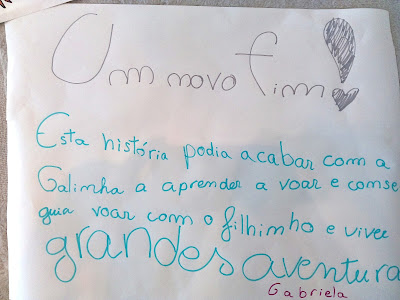 Um novo fim!
Esta história podia acabar com a
Galinha a aprender a voar e conse
guia voar com o filhinho e viver
grandes aventura
Gabriela